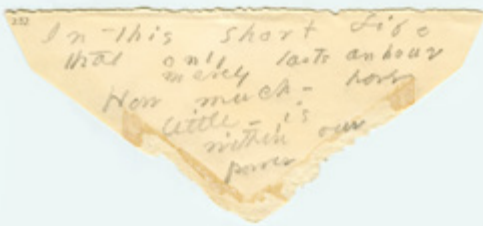 252
In this short Life
that only lasts an hour
merely
How much – how
little – is
within our
power